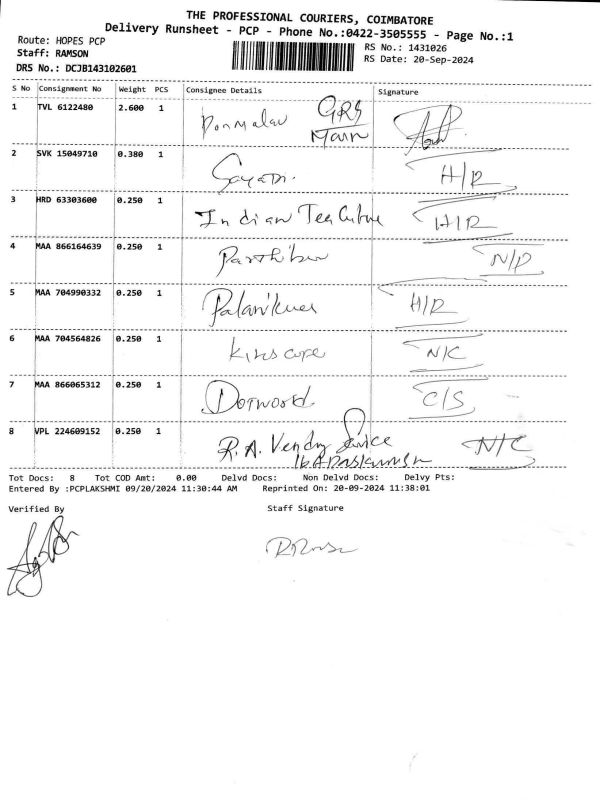 THE PROFESSIONAL COURIERS, COIMBATORE
Delivery Runsheet - PCP - Phone No.:0422-3505555 - Page No.:1
Route: HOPES PCP
RS No.: 1431026
Staff: RAMSON
RS Date: 20-Sep-2024
DRS No.: DCJB143102601
S No Consignment No Weight PCS Consignee Details Signature
1 TVL 6122480 2.600 1 Ponmalar GRS
Main
2 SVK 15049710 0.380 1 H/R
3 HRD 63303600 0.250 1 Indian Tea H/R
4 MAA 866164639 0.250 1 Parthiban N/P
5 MAA 704990332 0.250 1 H/R
6 MAA 704564826 0.250 1 N/C
7 MAA 866065312 0.250 1 Dotword C/S
8 VPL 224609152 0.250 1 R.A. Vendy Service N/C
Tot Docs: 8 Tot COD Amt: 0.00 Delvd Docs: Non Delvd Docs: Delvy Pts:
Entered By :PCPLAKSHMI 09/20/2024 11:30:44 AM Reprinted On: 20-09-2024 11:38:01
Verified By Staff Signature